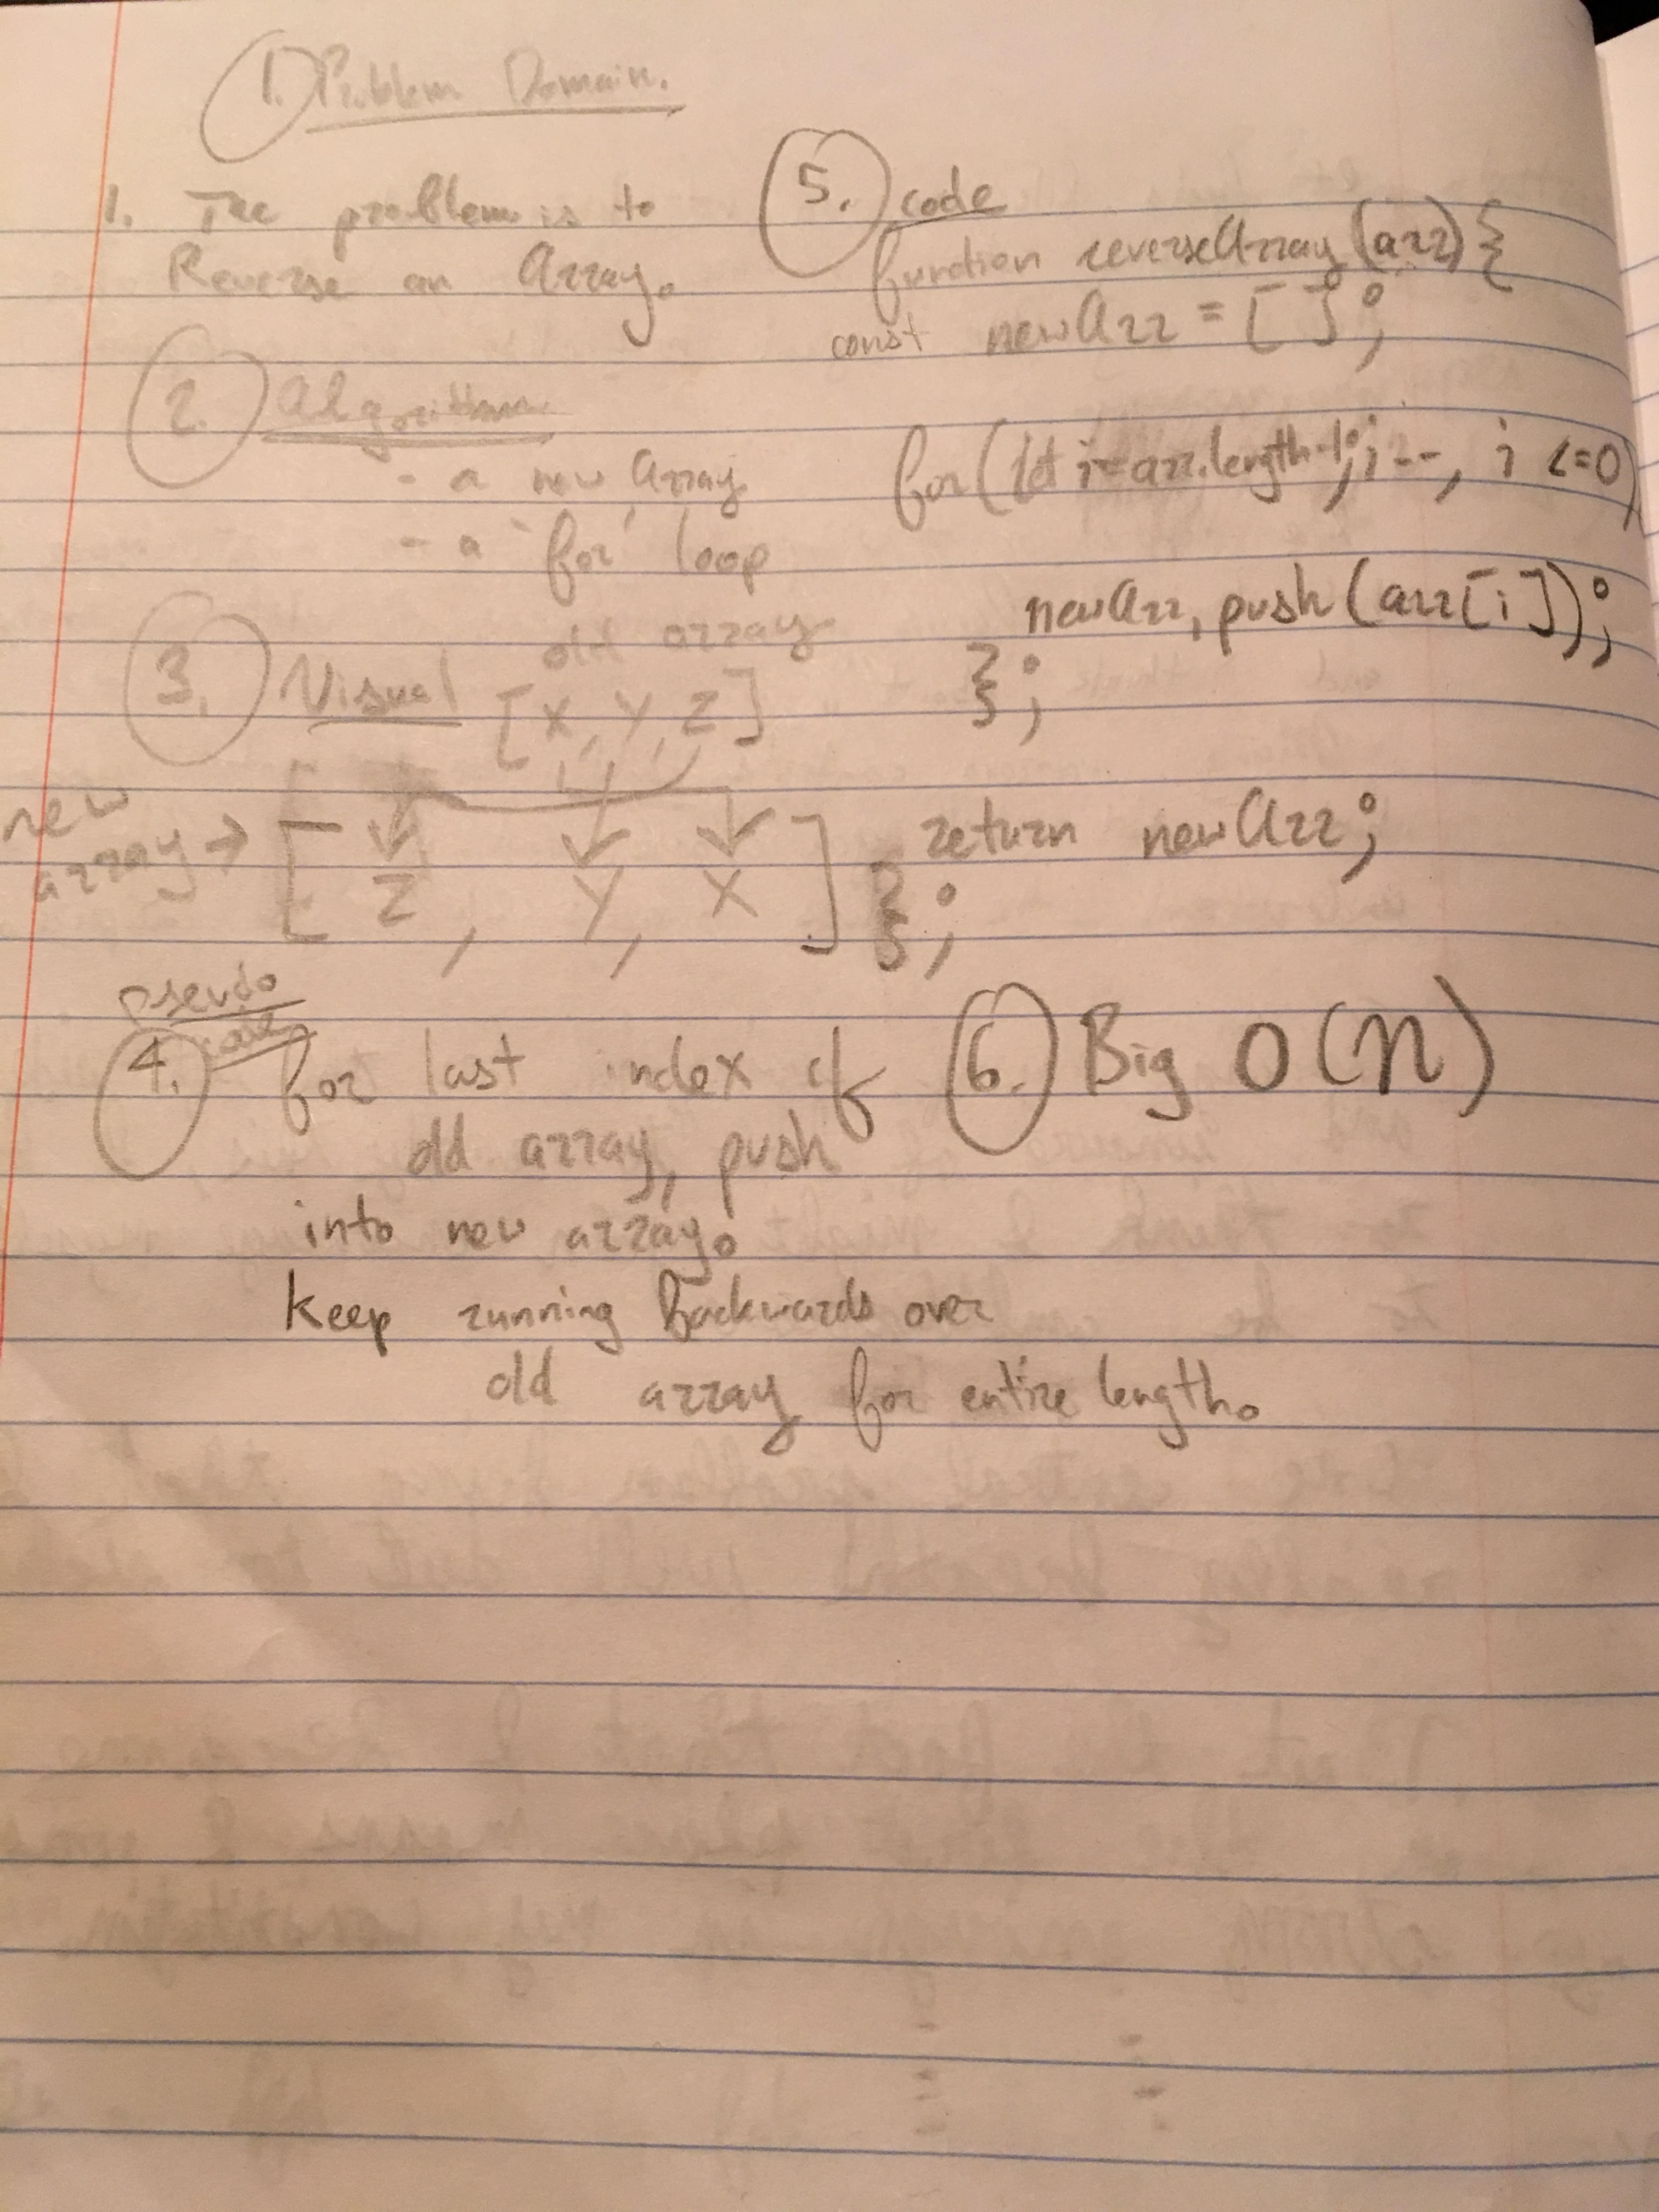 1. Problem Domain.
1. The problem is to
Reverse an Array.
2. Algorithm
- a new Array
- a for loop
3. Visual
old array
[X, Y, Z]
new
array →
[Z, Y, X]
pseudo
code
4. for last index of
old array, push
into new array.
Keep running backwards over
old array for entire length.
5. code
function reverseArray(arr){
const newArr = [];
for(let i=arr.length-1; i--, i <=0)
newArr.push(arr[i]);
};
return newArr;
};
6. Big O(n)